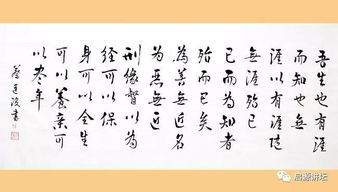 吾生也有涯
而知也無
涯以有涯随
無涯殆已
已而為知者
殆而已矣
為善無近名
為惡無近
刑緣督以為
經可以保
身可以全生
可以養親可
以盡年
启源讲坛